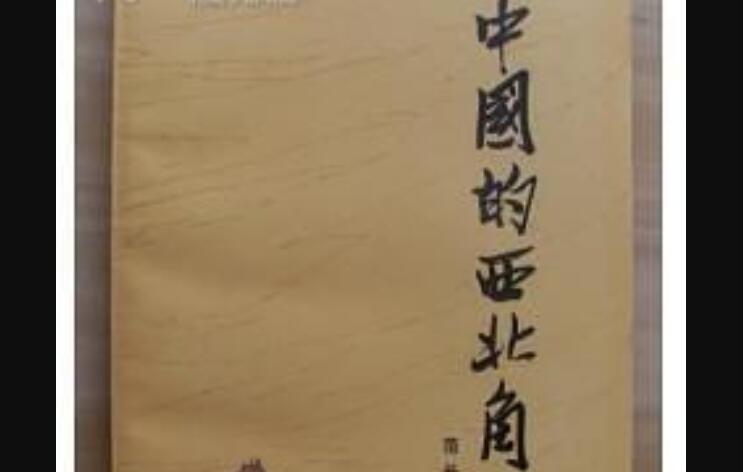 中國的西北角
范